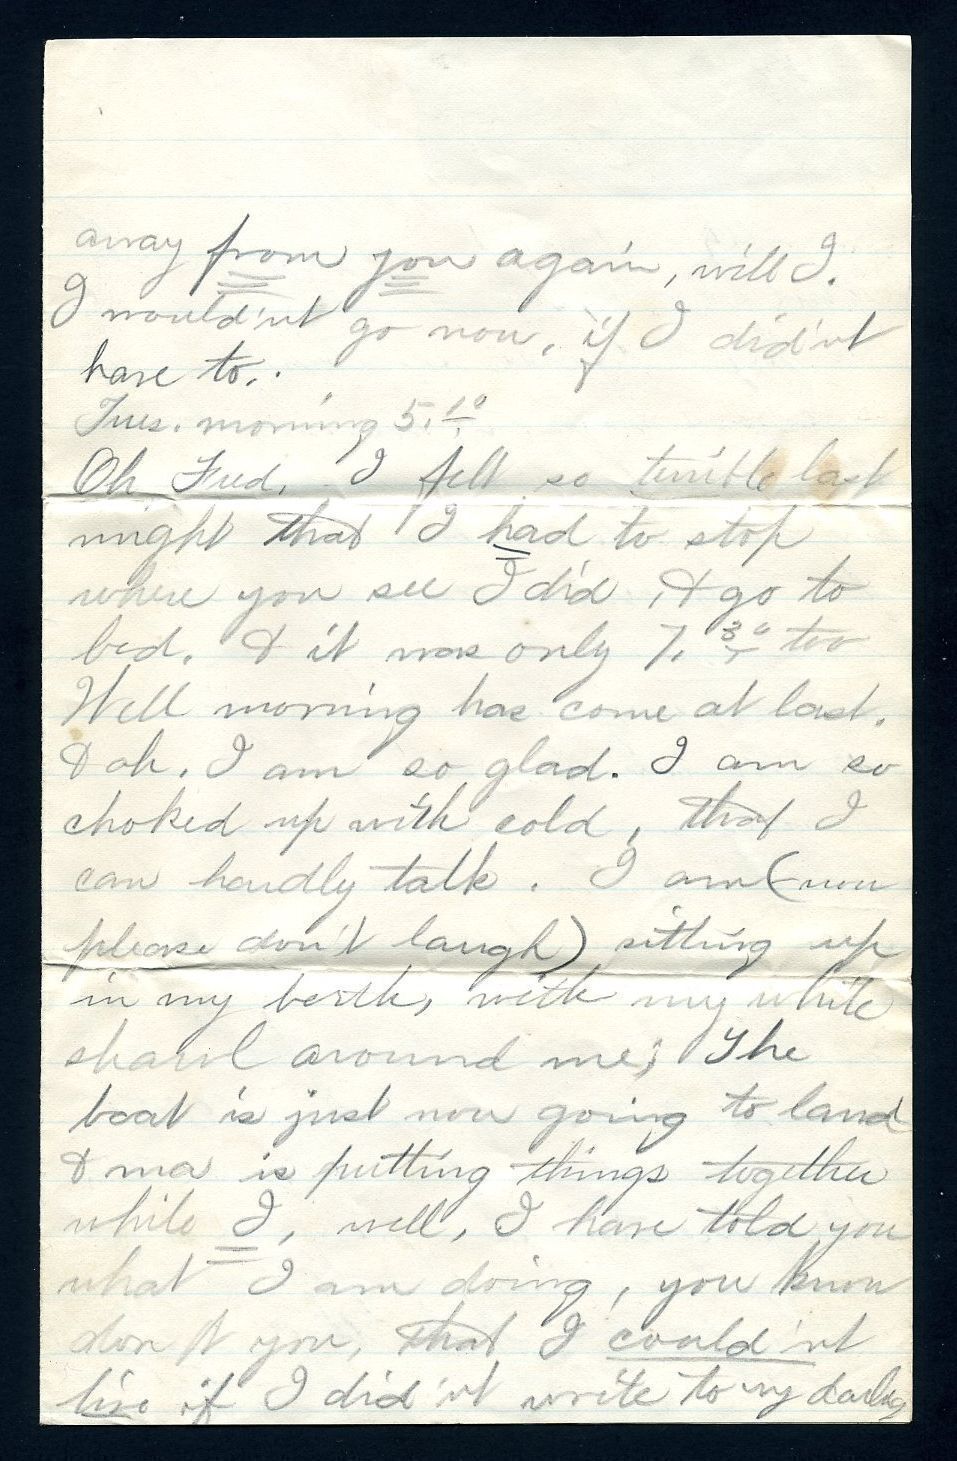 away from you again, will I.
I would'nt go now, if I did'nt
have to..
Tues. morning 5.10
Oh Fred. I felt so terrible last
night that I had to stop
where you see I did, & go to
bed. & it was only 7.30 too
Well morning has come at last.
& oh. I am so glad. I am so
choked up with cold, that I
can hardly talk. I am (now
please don't laugh) sitting up
in my berth, with my white
shawl around me; The
boat is just now going to land
& ma is putting things together
while I, well, I have told you
what I am doing, you know
don't you, that I could'nt
live if I did'nt write to my darling